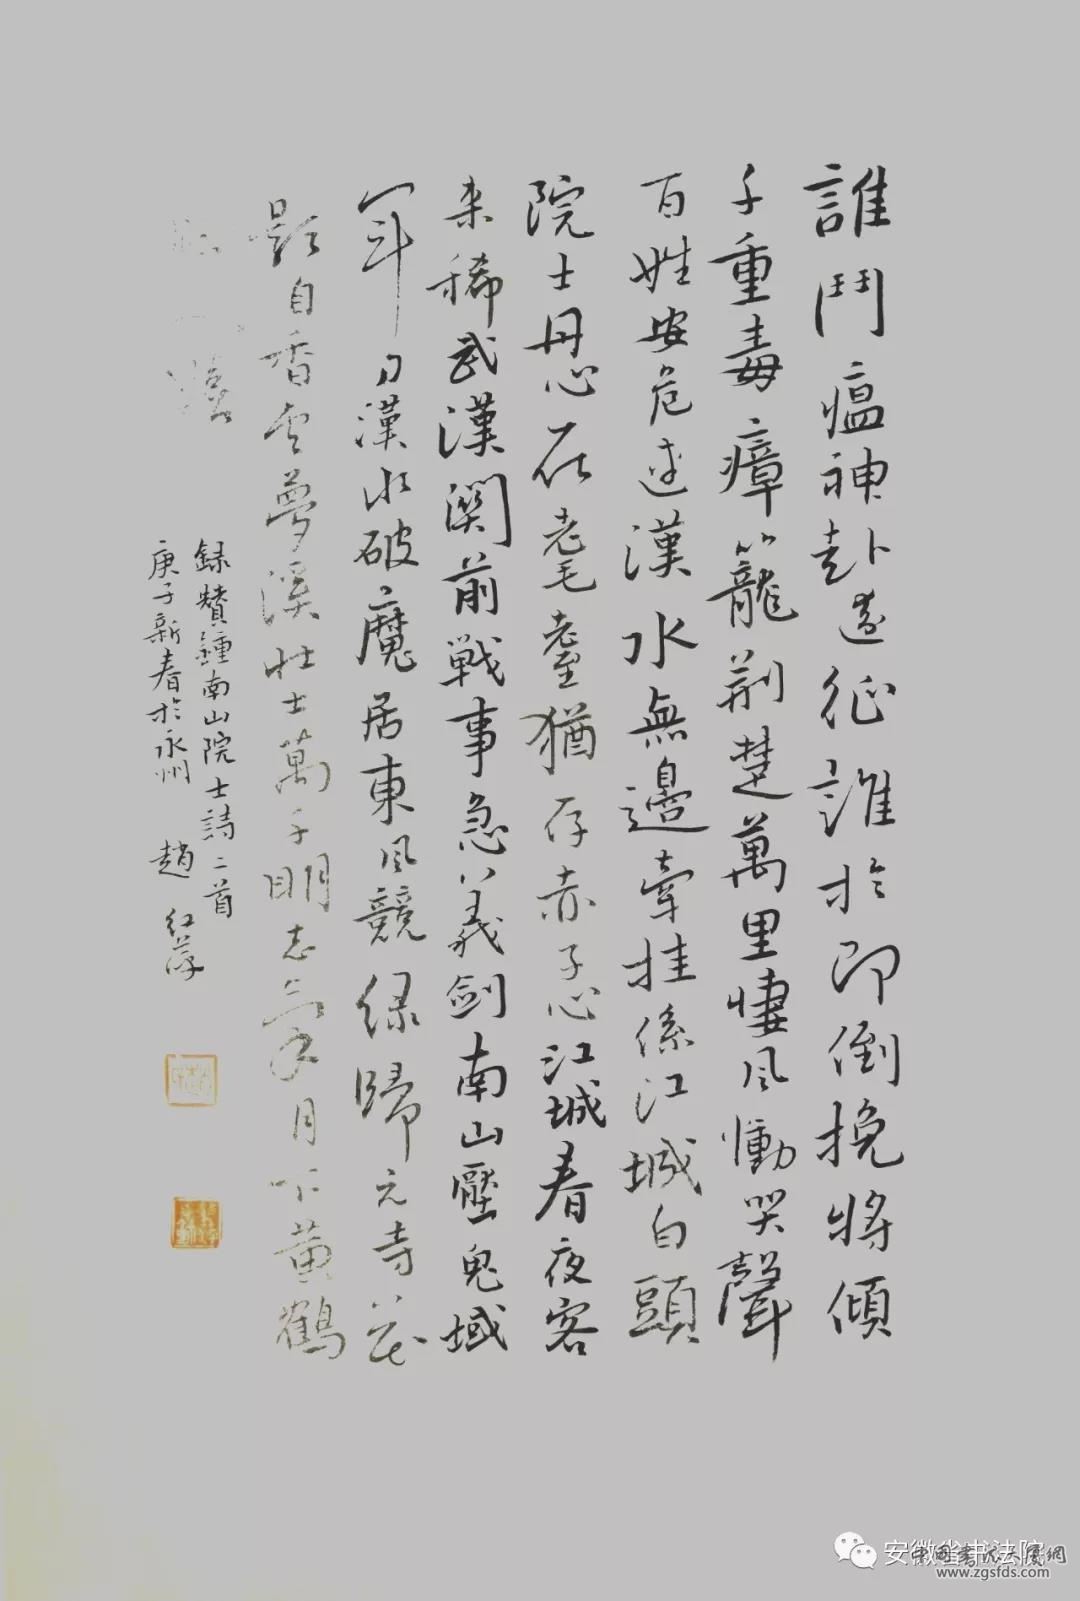 誰鬥瘟神赴遠征誰於即倒挽將傾
子重毒瘴籠荆楚萬里悽風慟哭聲
百姓安危逆漢水無邊牽挂係江城白頭
院士丹心在老耄耋猶存赤子心江城春夜客
来稀武漢關前戦事急義剑南山壓鬼域
軍刀漢水破魔居東風競绿歸元寺花
影自香雲夢溪壮士萬千明志氣月下黄鶴
録贊鍾南山院士詩二首
庚子新春於永州 趙红萍
安徽省书法院
www.zgsfds.com